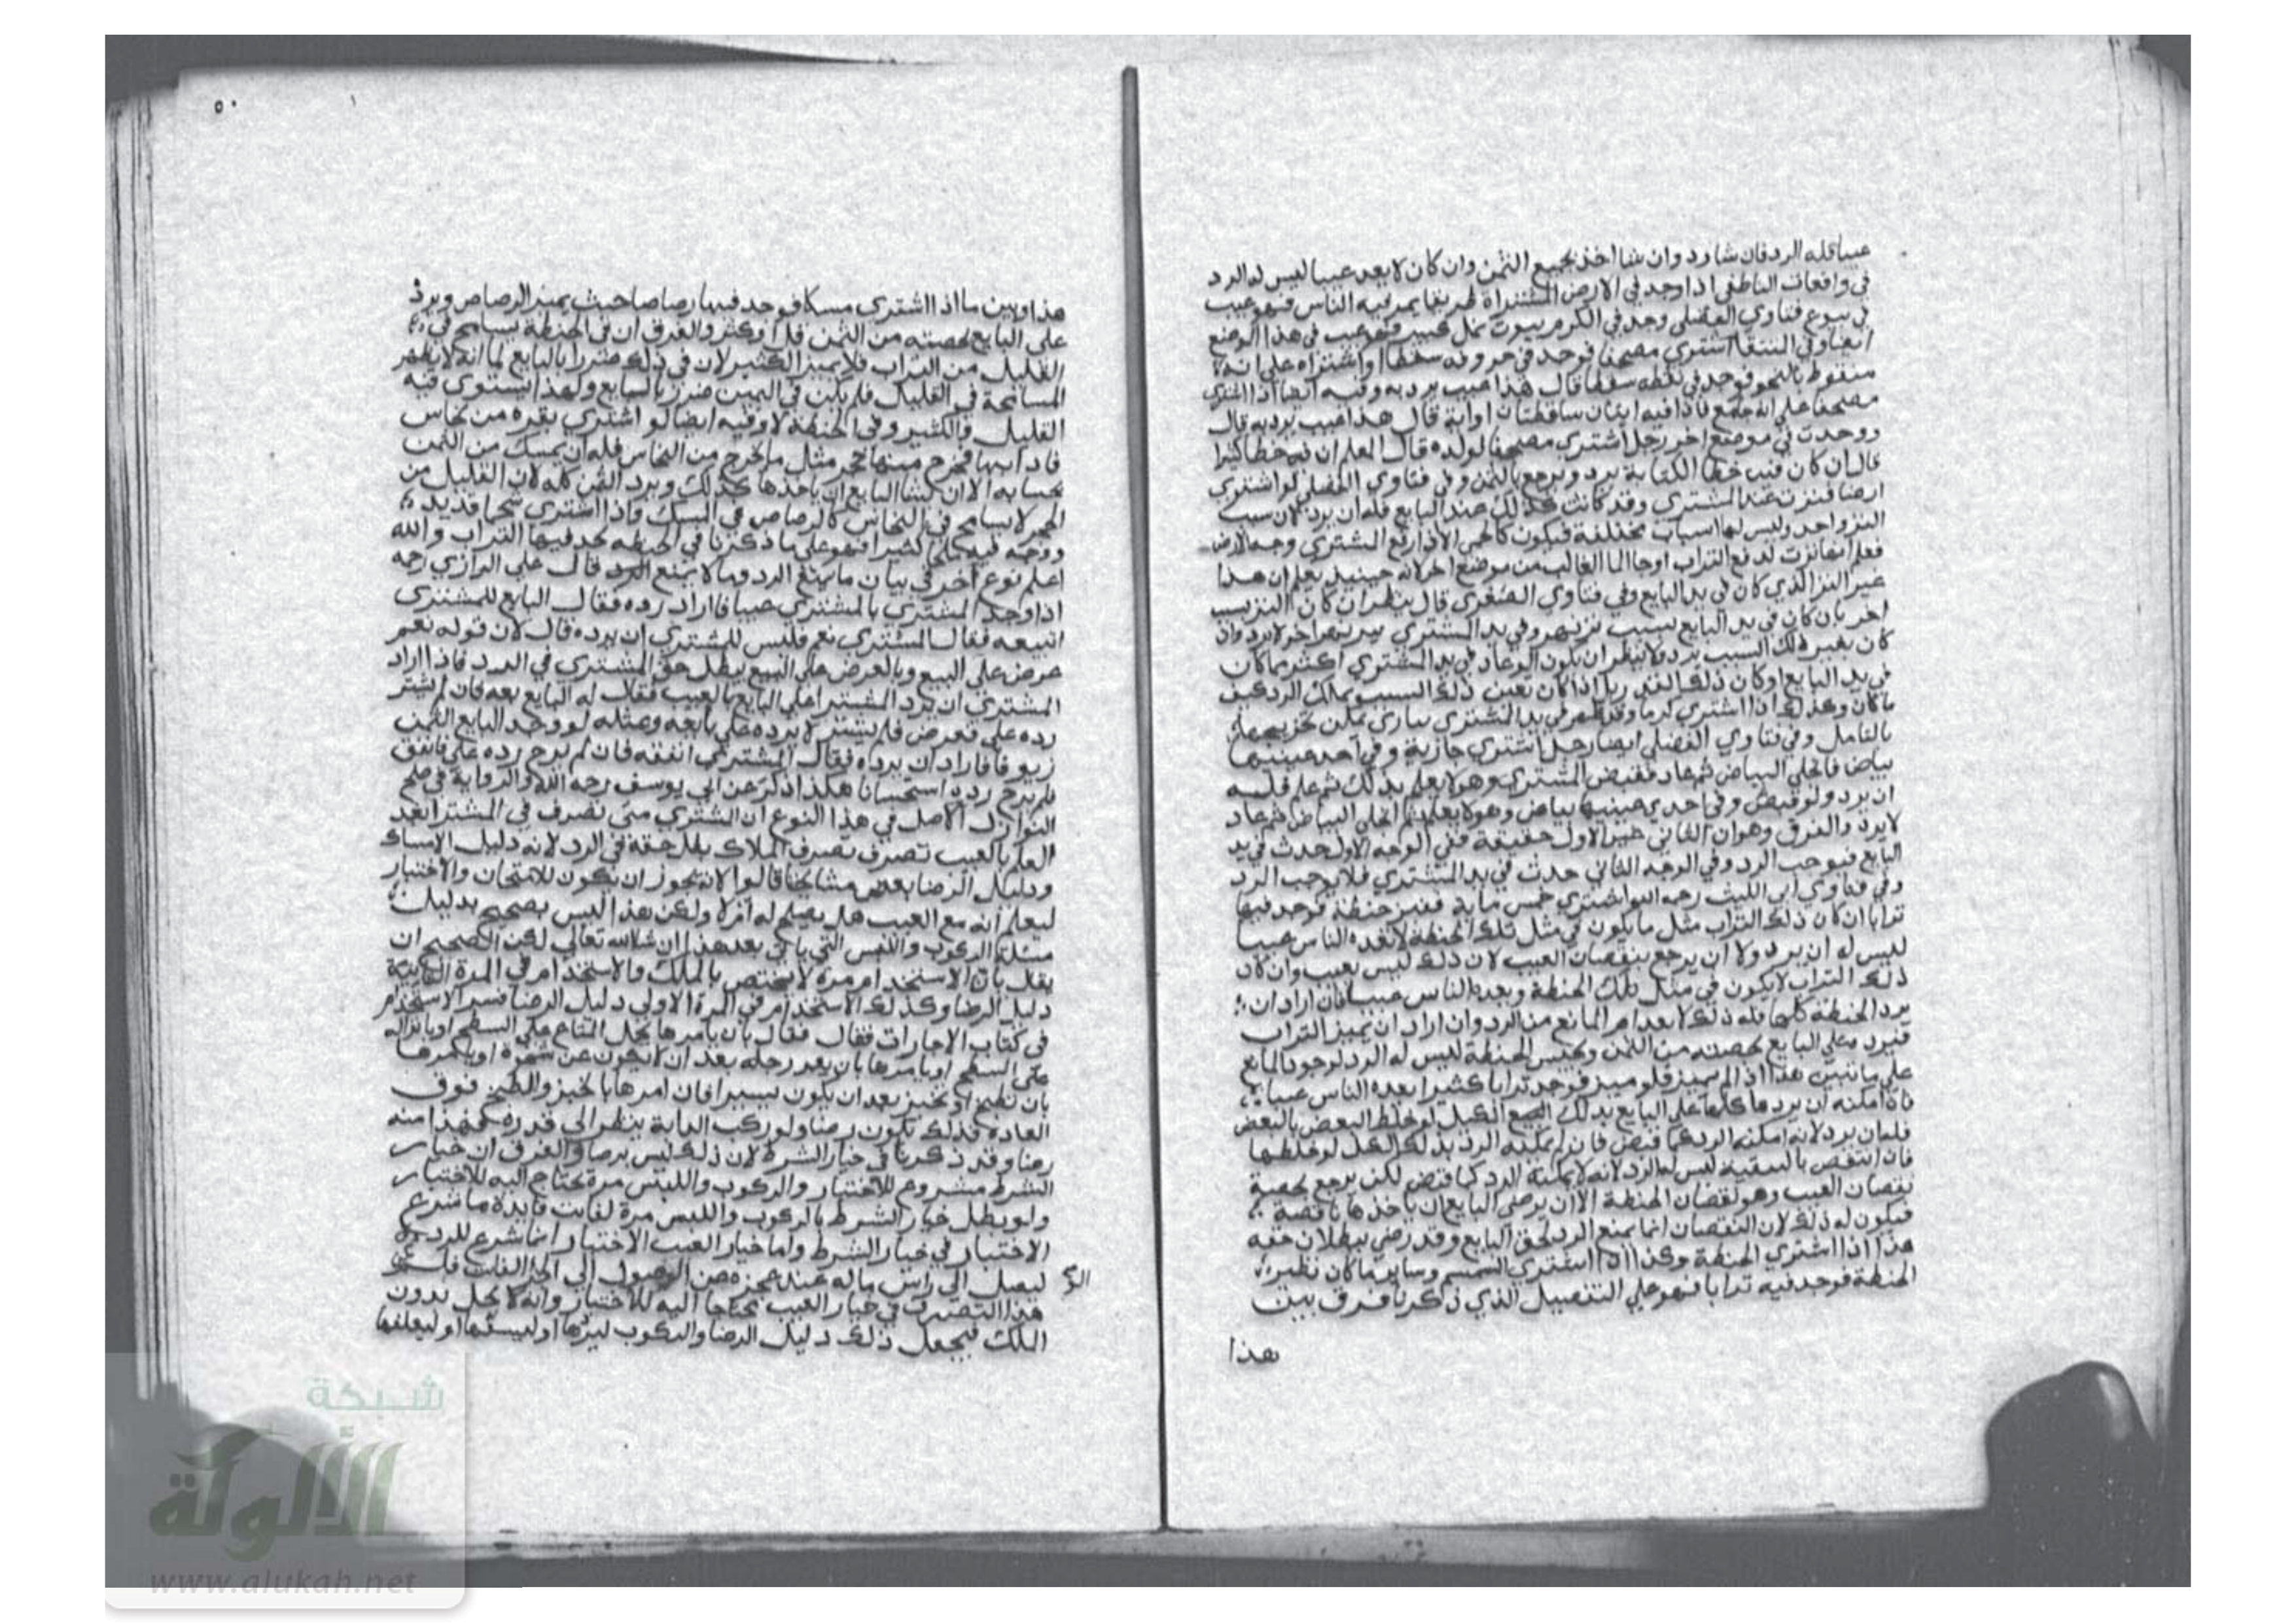 عيبا فله الرد فان شا رد وان شا اخذ بجميع الثمن وان كان لا يعد عيبا ليس له الرد
في واقعات الناطفي اذا وجد في الارض المشتراة طريقا يمر فيه الناس فهو عيب
في بيوع فتاوي الفضلي وجد في الكرم بيوت نمل كبير فهو عيب في هذا الموضع
ايضا وفي المنتقا اشتري مصحفا فوجد في حروفه سقطا او اشتراه على انه
منقوط بالنحو فوجد في نقطه سقطا قال هذا عيب يرد به وفيه ايضا اذا اشتري
مصحفا على انه جامع فاذا فيه ايتان ساقطتان او اية قال هذا عيب يرد به قال
ووجدت في موضع اخر رجل اشتري مصحفا لولده قال المعلم ان فيه خطا كثيرا
قال ان كان فيه خطا الكتابة يرد ويرجع بالثمن وفي فتاوي الفضلي لو اشتري
ارضا فنزت عند المشتري وقد كانت كذلك عند البايع فله ان يرد لان سبب
النز واحد وليس لها اسباب مختلفة فيكون كالحمى الا اذا رفع المشتري وجه الارض
فعلم انها نزت لدفع التراب او جا الما الغالب من موضع اخر لانه حينيذ يعلم ان هذا
غير النز الذي كان في يد البايع وفي فتاوي الصغرى قال ينظر ان كان النز بسبب
اخر بان كان في يد البايع بسبب نز نهر وفي يد المشتري بسبب نهر اخر لا يرد وان
كان بغير ذلك السبب يرد ولا ينظر ان يكون الوعاد في يد المشتري اكثر مما كان
في يد البايع او كان ذلك الغير ربا اذا كان تعين ذلك السبب ويملك الرد كيف
ما كان وكذلك اذا اشتري كرما وقد ظهر في يد المشتري يمكن تخريجها
بالتامل وفي فتاوي الفضلي ايضا رجل اشتري جارية وفي احد عينيها
بياض فانجلي البياض ثم عاد فقبض المشتري وهو لا يعلم بذلك ثم علم فله
ان يرد ولو قبض وفي احدي عينيها بياض وهو لا يعلم ثم انجلي البياض ثم عاد
لا يرد والفرق وهو ان الثاني غير الاول حقيقة ففي الوجه الاول حدث في يد
البايع فيوجب الرد وفي الوجه الثاني حدث في يد المشتري فلا يوجب الرد
وفي فتاوي ابي الليث رحمه الله اشتري خمس ماية قفيز حنطة فوجد فيها
ترابا ان كان ذلك التراب مثل ما يكون في مثل تلك الحنطة لا يعده الناس عيبا
ليس له ان يرد ولا ان يرجع بنقصان العيب لان ذلك ليس بعيب وان كان
ذلك التراب لا يكون في مثل تلك الحنطة ويعده الناس عيبا فان اراد ان
يرد الحنطة كلها فله ذلك لانعدام المانع من الرد وان اراد ان يميز التراب
فيرد على البايع بحصته من الثمن ويحبس الحنطة ليس له الرد لوجود المانع
على ما نبين هذا اذا لم يميز فلو ميز فوجد ترابا كثيرا يعده الناس عيبا
فان امكنه ان يردها كلها على البايع بذلك الكيل لو خلط البعض بالبعض
فله ان يرد لانه امكنه الرد كما قبض فان لم يمكنه الرد بذلك الكيل لو خلطها
فان انتقص بالتنقية ليس له الرد لانه لا يمكنه الرد كما قبض لكن يرجع بحصة
نقصان العيب وهو نقصان الحنطة الا ان يرضى البايع ان ياخذها ناقصة
فيكون له ذلك لان النقصان انما يمنع الرد لحق البايع وقد رضي ببطلان حقه
هذا اذا اشتري الحنطة وكذا اذا اشتري السمسم وساير ما كان نظير
الحنطة فوجد فيه ترابا فهو على التفصيل الذي ذكرنا فرق بين
هذا
٥٠
هذا وبين ما اذا اشترى مسكا فوجد فيها رصاصا حيث يميز الرصاص ويرد
على البايع بحصته من الثمن قل او كثر والفرق ان في الحنطة يسامح في
القليل من التراب فلا يميز الكثير لان في ذلك ضررا بالبايع لما انه لا يظهر
المسامحة في القليل فلم يكن في التمييز ضرر بالبايع ولهذا يستوى فيه
القليل والكثير وفى الحنطة لا وفيه ايضا لو اشتري بقره من نحاس
فاذابها فخرج منها حجر مثل ما يخرج من النحاس فله ان يمسك من الثمن
بحسابه الا ان يشا البايع ان ياخذها كذلك ويرد الثمن كله لان القليل من
الحجر لا يسامح في النحاس كالرصاص في المسك واذا اشتري شحما قديد
ووجد فيه ملحا كثيرا فهو على ما ذكرنا في الحنطه يجد فيها التراب والله
اعلم نوع اخر في بيان ما يمنع الرد وما لا يمنع الرد قال على الرازي رحمه
اذا وجد المشتري بالمشتري عيبا فاراد رده فقال البايع للمشتري
اتبيعه فقال المشتري نعم فليس للمشتري ان يرده قال لان قوله نعم
عرض على البيع وبالعرض على البيع يبطل حق المشتري في الرد فاذا اراد
المشتري ان يرد المشترا على البايع بالعيب فقال له البايع بعه فان لم يشتر
رده على فعرض فلم يشتر لا يرده على بايعه وبمثله لو وجد البايع الثمن
زيوفا فاراد ان يرداه فقال المشتري انفقه فان لم يرج رده على فانفق
فلم يرج رده استحسانا هكذا ذكر عن ابي يوسف رحمه الله والرواية في صلح
النوازل الاصل في هذا النوع ان المشتري متى تصرف في المشترا بعد
العلم بالعيب تصرف تصرف الملاك بطل حقه في الرد لانه دليل الامساك
ودليل الرضا بعض مشايخنا قالوا لانه يجوز ان تكون للامتحان والاختبار
ليعلم انه مع العيب هل يصلح له ام لا ولكن هذا ليس بصحيح بدليل
مسئلة الركوب واللبس التي ياتي بعد هذا ان شا الله تعالى لكن الصحيح ان
يقال بان الاستخدام مرة لا يختص بالملك والاستخدام في المرة الثانية
دليل الرضا وكذلك الاستخدام في المرة الاولى دليل الرضا فسر الاستخدام
في كتاب الاجارات فقال فقال بان يامرها بحمل المتاع على السطح او بانزاله
على السطح او يامرها بان يغمز رجله بعد ان لا يكون عن شهوة او يامرها
بان تطبخ او تخبز بعد ان يكون يسيرا فان امرها بالخبز والطبخ فوق
العادة فذلك تكون رضا ولو ركب الدابة ينظر الى قدره فهذا منه
رضا وقد ذكرنا في خيار الشرط لان ذلك ليس برضا والفرق ان خيار
الشرط مشروع للاختبار والركوب واللبس مرة يحتاج اليه للاختبار
ولو بطل خيار الشرط بالركوب واللبس مرة لفاتت فايدة ما شرع
الاختبار في خيار الشرط واما خيار العيب الاختبار انما شرع للرد
ليصل الى راس ماله عند عجزه عن الوصول الى الجز الفايت فلم يكن
هذا التصرف في خيار العيب محتاجا اليه للاختبار وانه لا يحل بدون
الملك فيجعل ذلك دليل الرضا والركوب ليردها او ليسقها او ليعلفها
شبكة
الألوكة
www.alukah.net